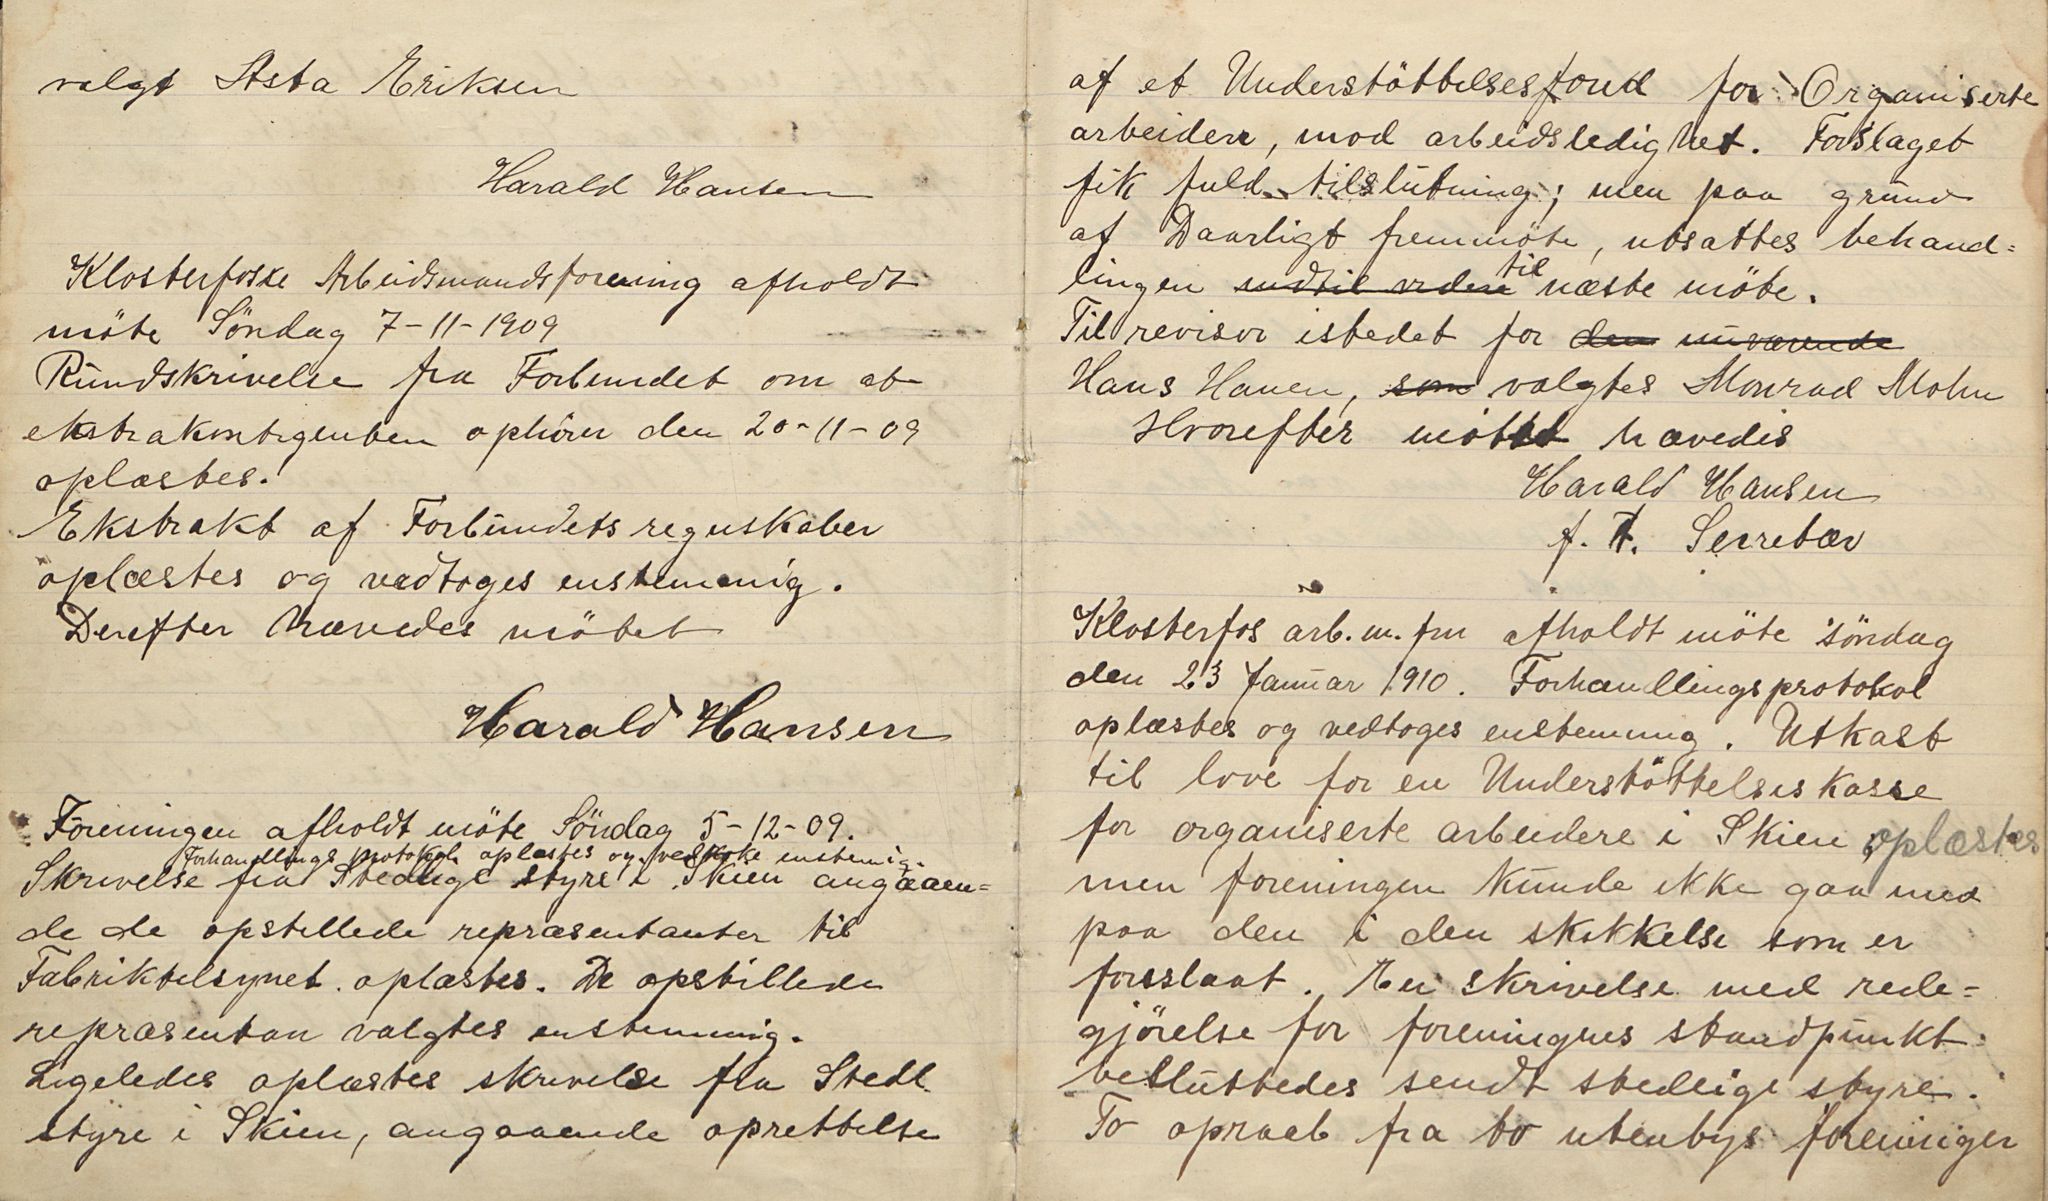 valgt Asta Eriksen
Harald Hansen
Klosterfoske Arbeidsmandsforening afholdt
möte Söndag 7-11-1909
Rundskrivelse fra Forbundet om at
ekstrakontigenten ophörer den 20-11-09
oplæstes.
Ekstrakt af Forbundets regnskaber
oplæstes og vedtoges enstemmig.
Derefter hævedes mötet
Harald Hansen
Foreningen afholdt möte Söndag 5-12-09.
Forhandlings protokol oplæstes og enstemig.
Skrivelse fra Stedlige styre i Skien angaaen=
de de opstillede repræsentanter til
Fabriktilsynet oplæstes. De opstillede
repræsentan valgtes enstemmig.
Ligeledes oplæstes skrivelse fra Stedl.
styre i Skien, angaaende oprettelse
af et Understöttelsesfond for Organiserte
arbeidere, mod arbeidsledighet. Forslaget
fik fuld tilslutning; men paa grund
af Daarligt fremmöte, utsattes behand=
lingen indtil videre til næste möte.
Til revisor istedet for den nuværende
Hans Hanen, som valgtes Monrad Mohn
Hvorefter mötet hævedes
Harald Hansen
f. T. Secretær
Klosterfos arb. m. frn afholdt möte söndag
den 23 Januar 1910. Forhandlingsprotokol
oplæstes og vedtoges enstemmig. Utkast
til love for en Understöttelseskasse
for organiserte arbeidere i Skien oplæstes
men foreningen kunde ikke gaa med
paa den i den skikkelse som er
forsslaat. En skrivelse med rede=
gjörelse for foreningnes standpunkt
besluttedes sendt stedlige styre.
To opraab fra to utenbys foreninger